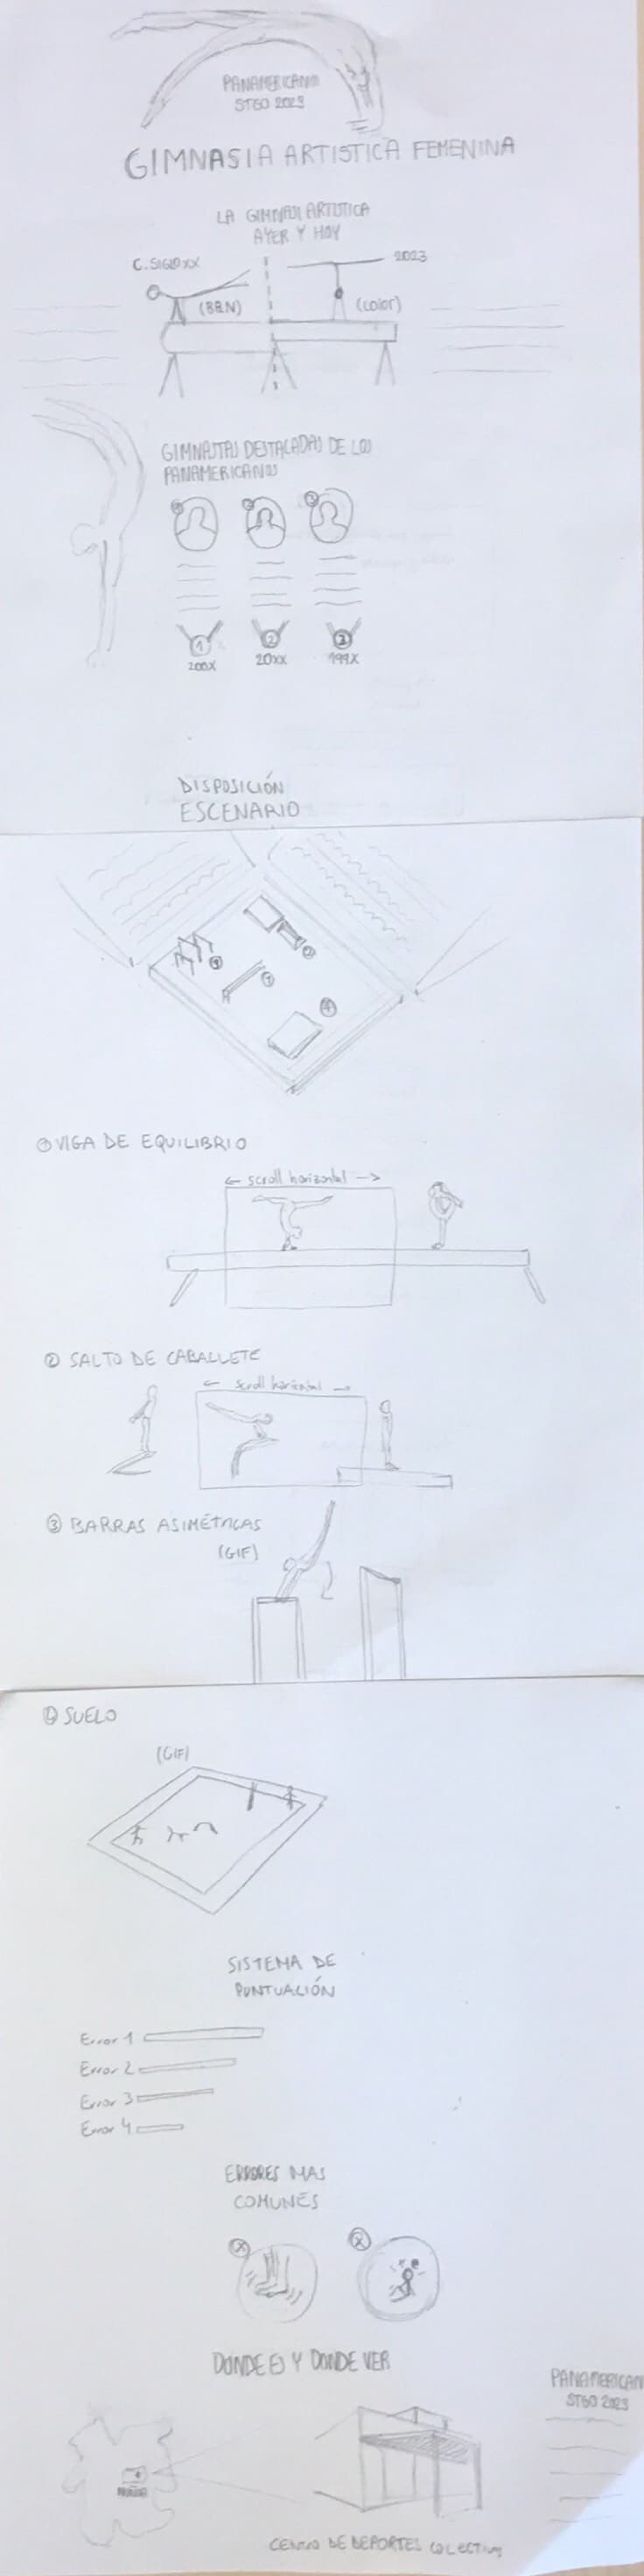 PANAMERICANO
STGO 2023
GIMNASIA ARTISTICA FEMENINA
LA GIMNASI ARTISTICA
AYER Y HOY
C. SIGLO XX
2023
(B&N)
(color)
GIMNASTAS DESTACADAS DE LOS
PANAMERICANOS
1 2 3
200X 20XX 199X
DISPOSICIÓN
ESCENARIO
① VIGA DE EQUILIBRIO
← scroll horizontal →
② SALTO DE CABALLETE
← scroll horizontal →
③ BARRAS ASIMÉTRICAS
(GIF)
④ SUELO
(GIF)
SISTEMA DE
PUNTUACIÓN
Error 1
Error 2
Error 3
Error 4
ERRORES MAS
COMUNES
DONDE ES Y DONDE VER
PANAMERICAN
STGO 2023
CENTRO DE DEPORTES COLECTIVOS